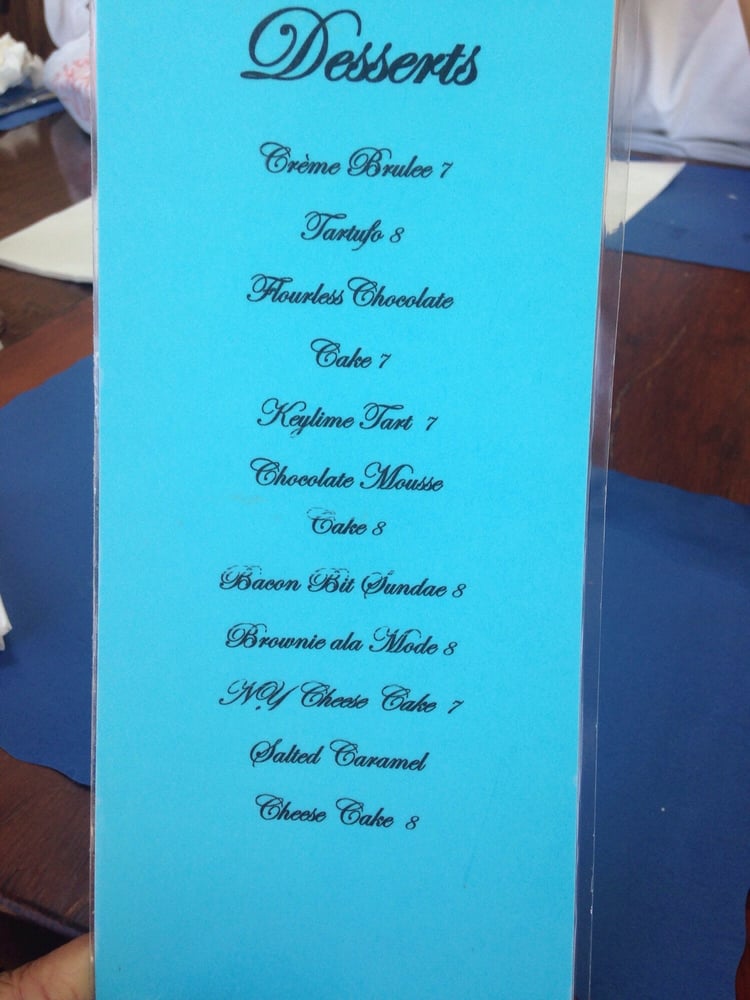 Desserts
Crème Brulee 7
Tartufo 8
Flourless Chocolate
Cake 7
Keylime Tart 7
Chocolate Mousse
Cake 8
Bacon Bit Sundae 8
Brownie ala Mode 8
NY Cheese Cake 7
Salted Caramel
Cheese Cake 8